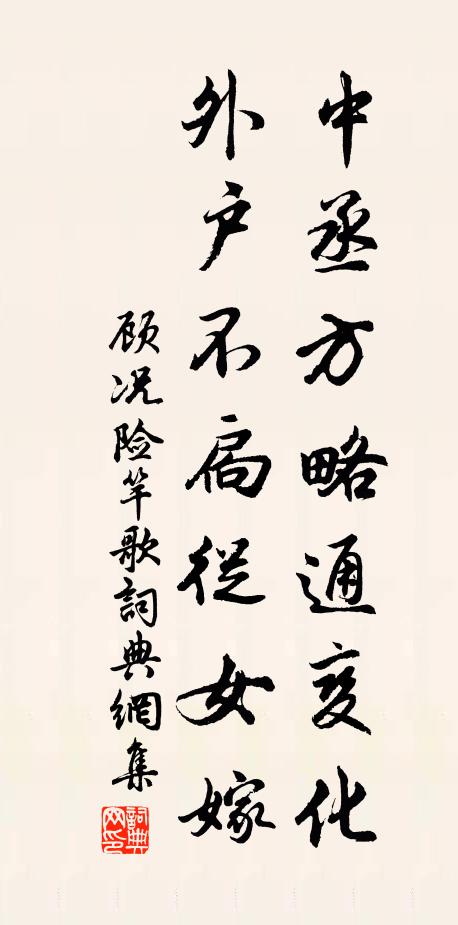 中丞方略通变化
外户不扃从女嫁
顾况险竿歌詞典網集
詞典网印